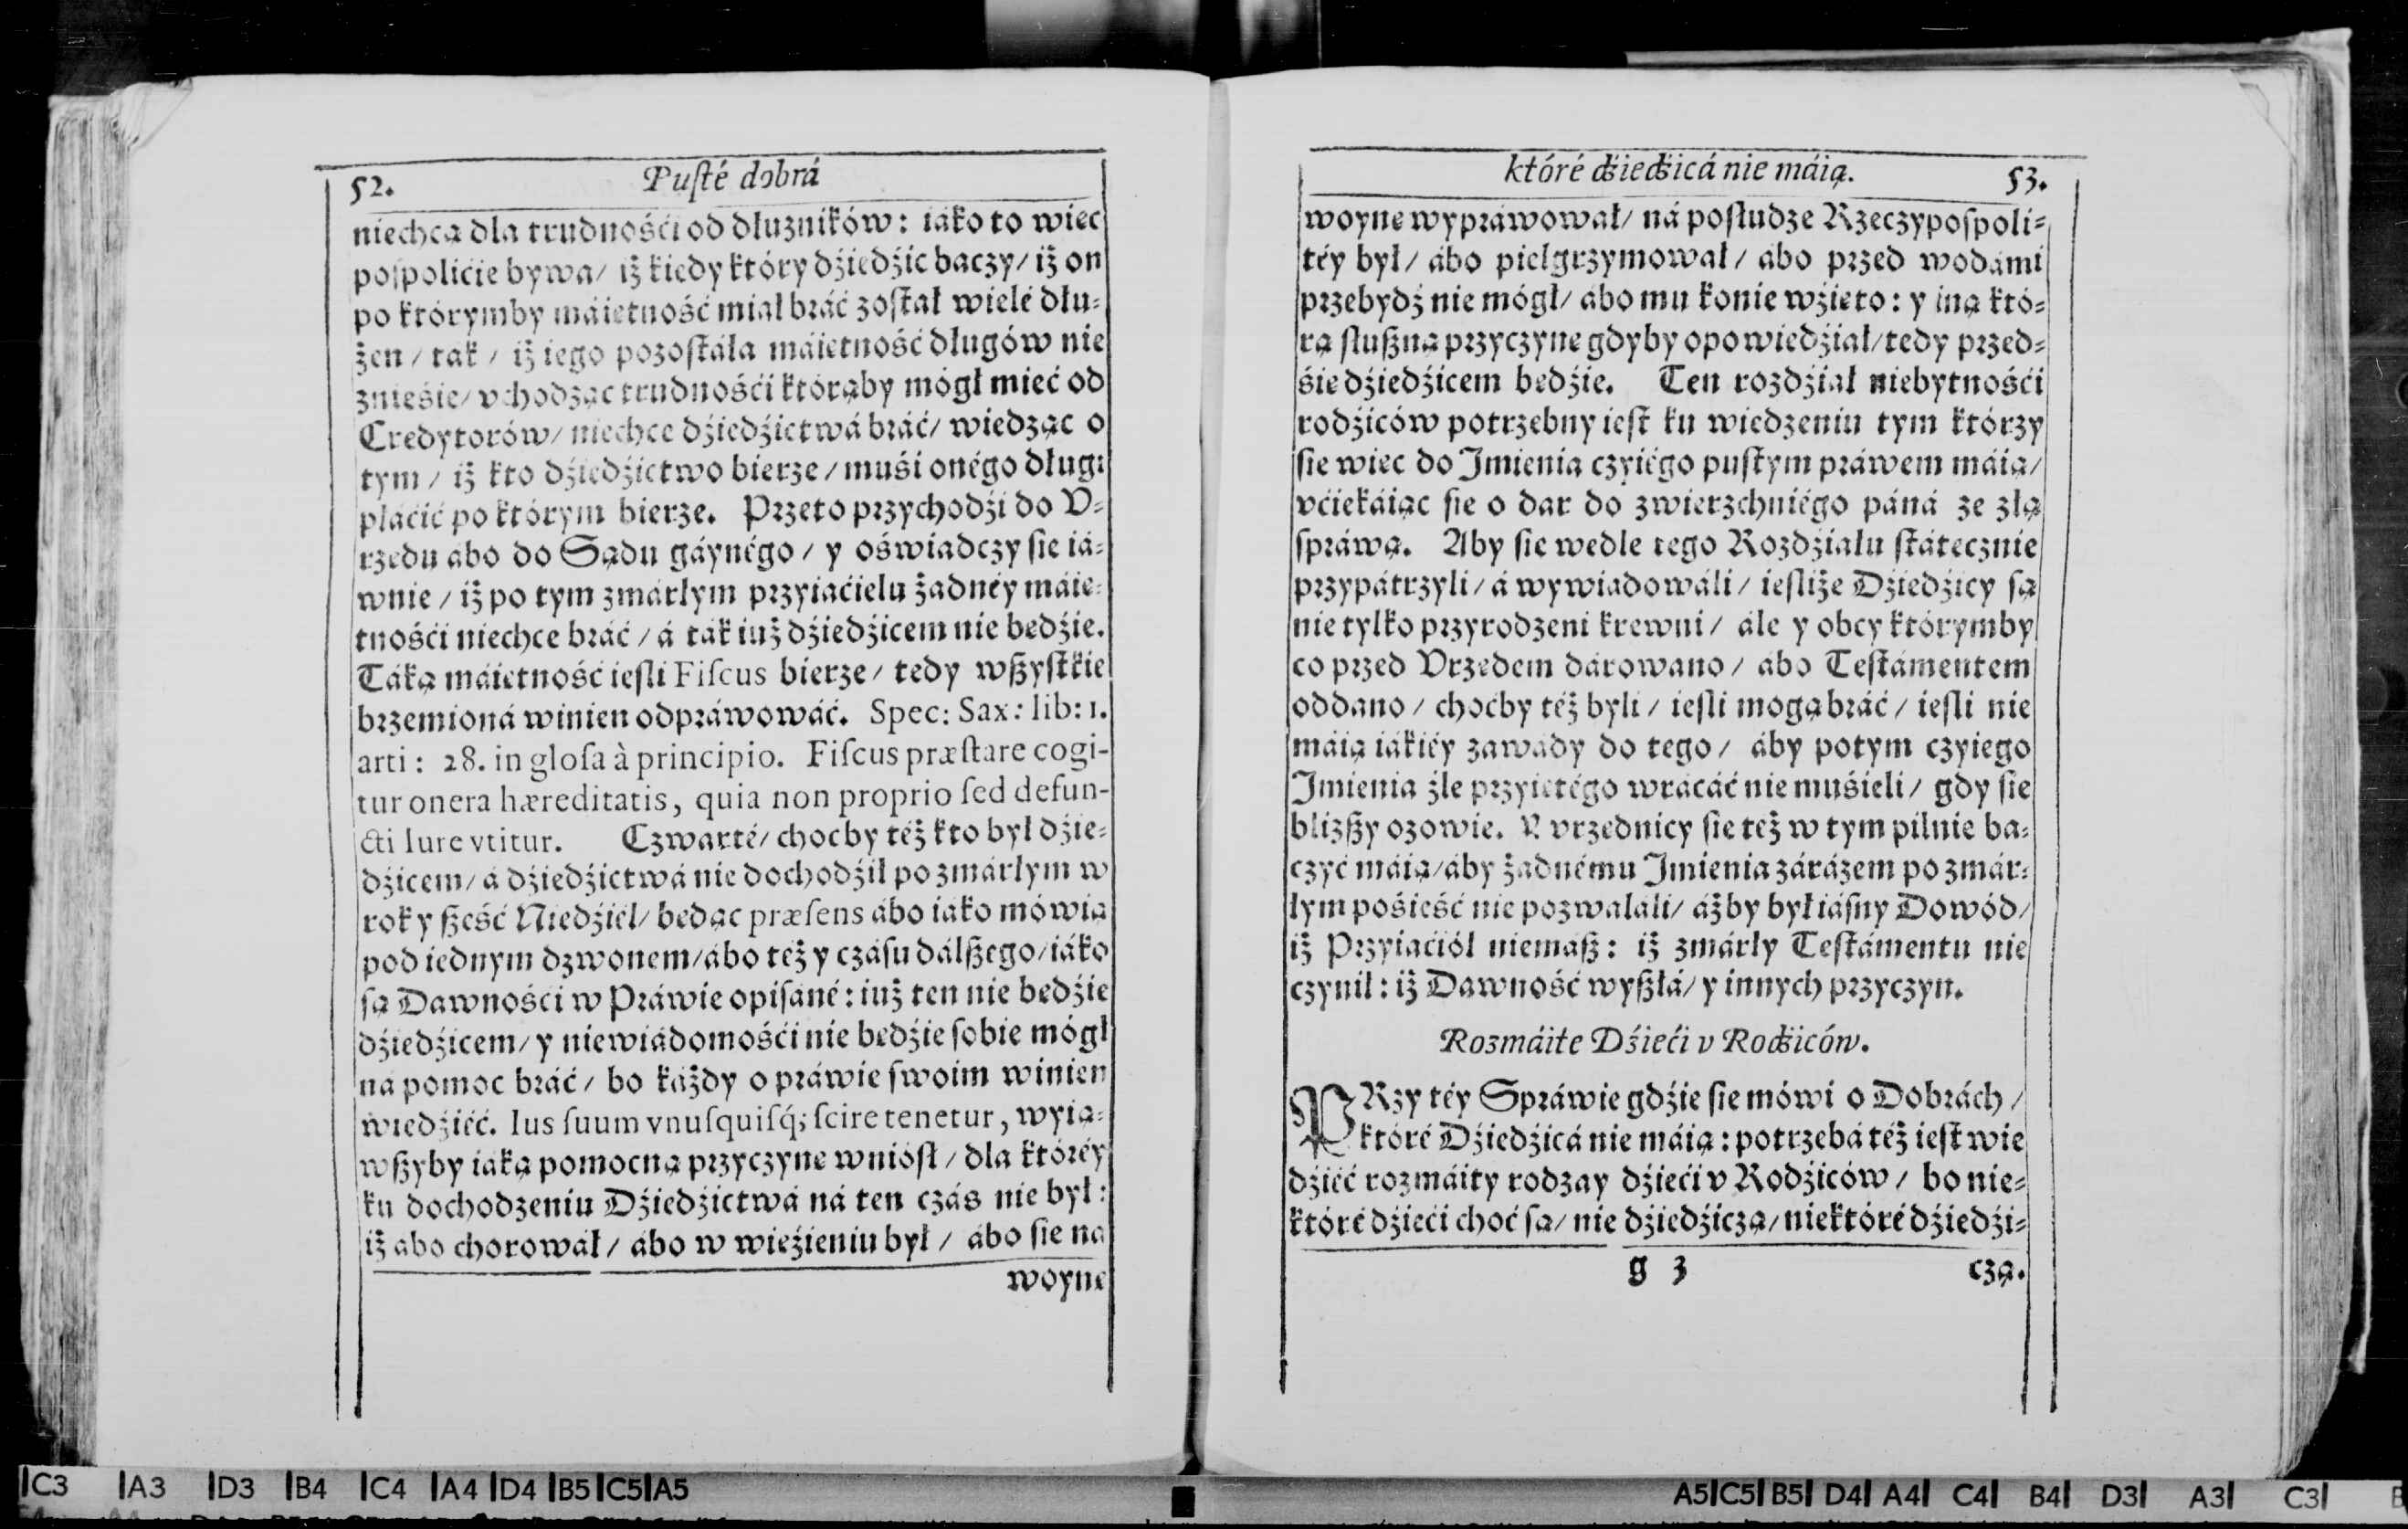 52. Puſté dobrá
niechcą dla trudnośći od dłużników: iáko to wiec
poſpolićie bywa/ iż kiedy który dźiedźic baczy/ iż on
po którymby máietność miał bráć zoſtał wielé dłu-
żen/ tak/ iż iego pozoſtáła máietność długów nie
znieśie/ vchodząc trudnośći którąby mógł mieć od
Credytorów/ niechce dźiedźictwá bráć/ wiedząc o
tym/ iż kto dźiedźictwo bierze/ muśi onégo długi
płáćić po którym bierze. Przeto przychodźi do V-
rzedu ábo do Sądu gáynégo/ y oświadczy ſie iá-
wnie/ iż po tym zmárłym przyiaćielu żadnéy máie-
tnośći niechce bráć/ á ták iuż dźiedźicem nie bedźie.
Táką máietność ieſli Fiſcus bierze/ tedy wßyſtkie
brzemioná winien odpráwowáć. Spec: Sax: lib: 1.
arti: 28. in gloſa à principio. Fiſcus præſtare cogi-
tur onera hæreditatis, quia non proprio ſed defun-
cti Iure vtitur. Czwarté/ choćby téż kto był dźie-
dźicem/ á dźiedźictwá nie dochodźił po zmárłym w
rok y ßeść Niedźiel/ bedąc præſens ábo iáko mówią
pod iednym dzwonem/ ábo też y czáſu dálßego/ iáko
ſą Dawnośći w Práwie opiſáné: iuż ten nie bedźie
dźiedźicem/ y niewiádomośći nie bedźie ſobie mógł
ná pomoc bráć/ bo káżdy o práwie ſwoim winien
wiedźiéć. Ius ſuum vnuſquiſq́; ſcire tenetur, wyią-
wßyby iáką pomocną przyczyne wniósł/ dla któréy
ku dochodzeniu Dźiedźictwá ná ten czás nie był:
iż abo chorował/ ábo w wieźieniu był/ ábo ſie na
woyne
któré dźiedźicá nie máią. 53.
woyne wypráwował/ ná posłudze Rzeczypoſpoli-
téy był/ ábo pielgrzymował/ ábo przed wodámi
przebydź nie mógł/ ábo mu konie wźieto: y iną któ-
rą słußną przyczyne gdyby opowiedźiał/ tedy przed-
śie dźiedźicem bedźie. Ten rozdźiał niebytnośći
rodźiców potrzebny ieſt ku wiedzeniu tym którzy
ſie wiec do Imienia czyiégo puſtym práwem máią/
vćiekáiąc ſie o dar do zwierzchniégo páná ze złą
ſpráwą. Aby ſie wedle tego Rozdźiału ſtátecznie
przypátrzyli/ á wywiadowáli/ ieſliże Dźiedźicy ſą
nie tylko przyrodzeni krewni/ ále y obcy którymby
co przed Vrzedem dárowano/ ábo Teſtámentem
oddano/ choćby téż byli/ ieſli mogą bráć/ ieſli nie
máią iákiéy zawády do tego/ áby potym czyiego
Imienia źle przyietégo wrácáć nie muśieli/ gdy ſie
bliżßy ozowie. Y vrzednicy ſie też w tym pilnie ba-
czyć máią/ áby żadnému Imienia zárázem po zmár-
łym pośieść nie pozwaláli/ áżby był iáſny Dowód/
iż Przyiaćiół niemáß: iż zmárły Teſtámentu nie
czynił: iż Dawność wyßłá/ y innych przyczyn.
Rozmáite Dźieći v Rodźiców.
PRzy téy Spráwie gdźie ſie mówi o Dobrách/
któré Dźiedźicá nie máią: potrzebá téż ieſt wie
dźiéć rozmáity rodzay dźieći v Rodźiców/ bo nie-
któré dźieći choć ſą/ nie dźiedźiczą/ niektóré dźiedźi-
g 3 czą.
C3 A3 D3 B4 C4 A4 D4 B5 C5 A5
A5 C5 B5 D4 A4 C4 B4 D3 A3 C3